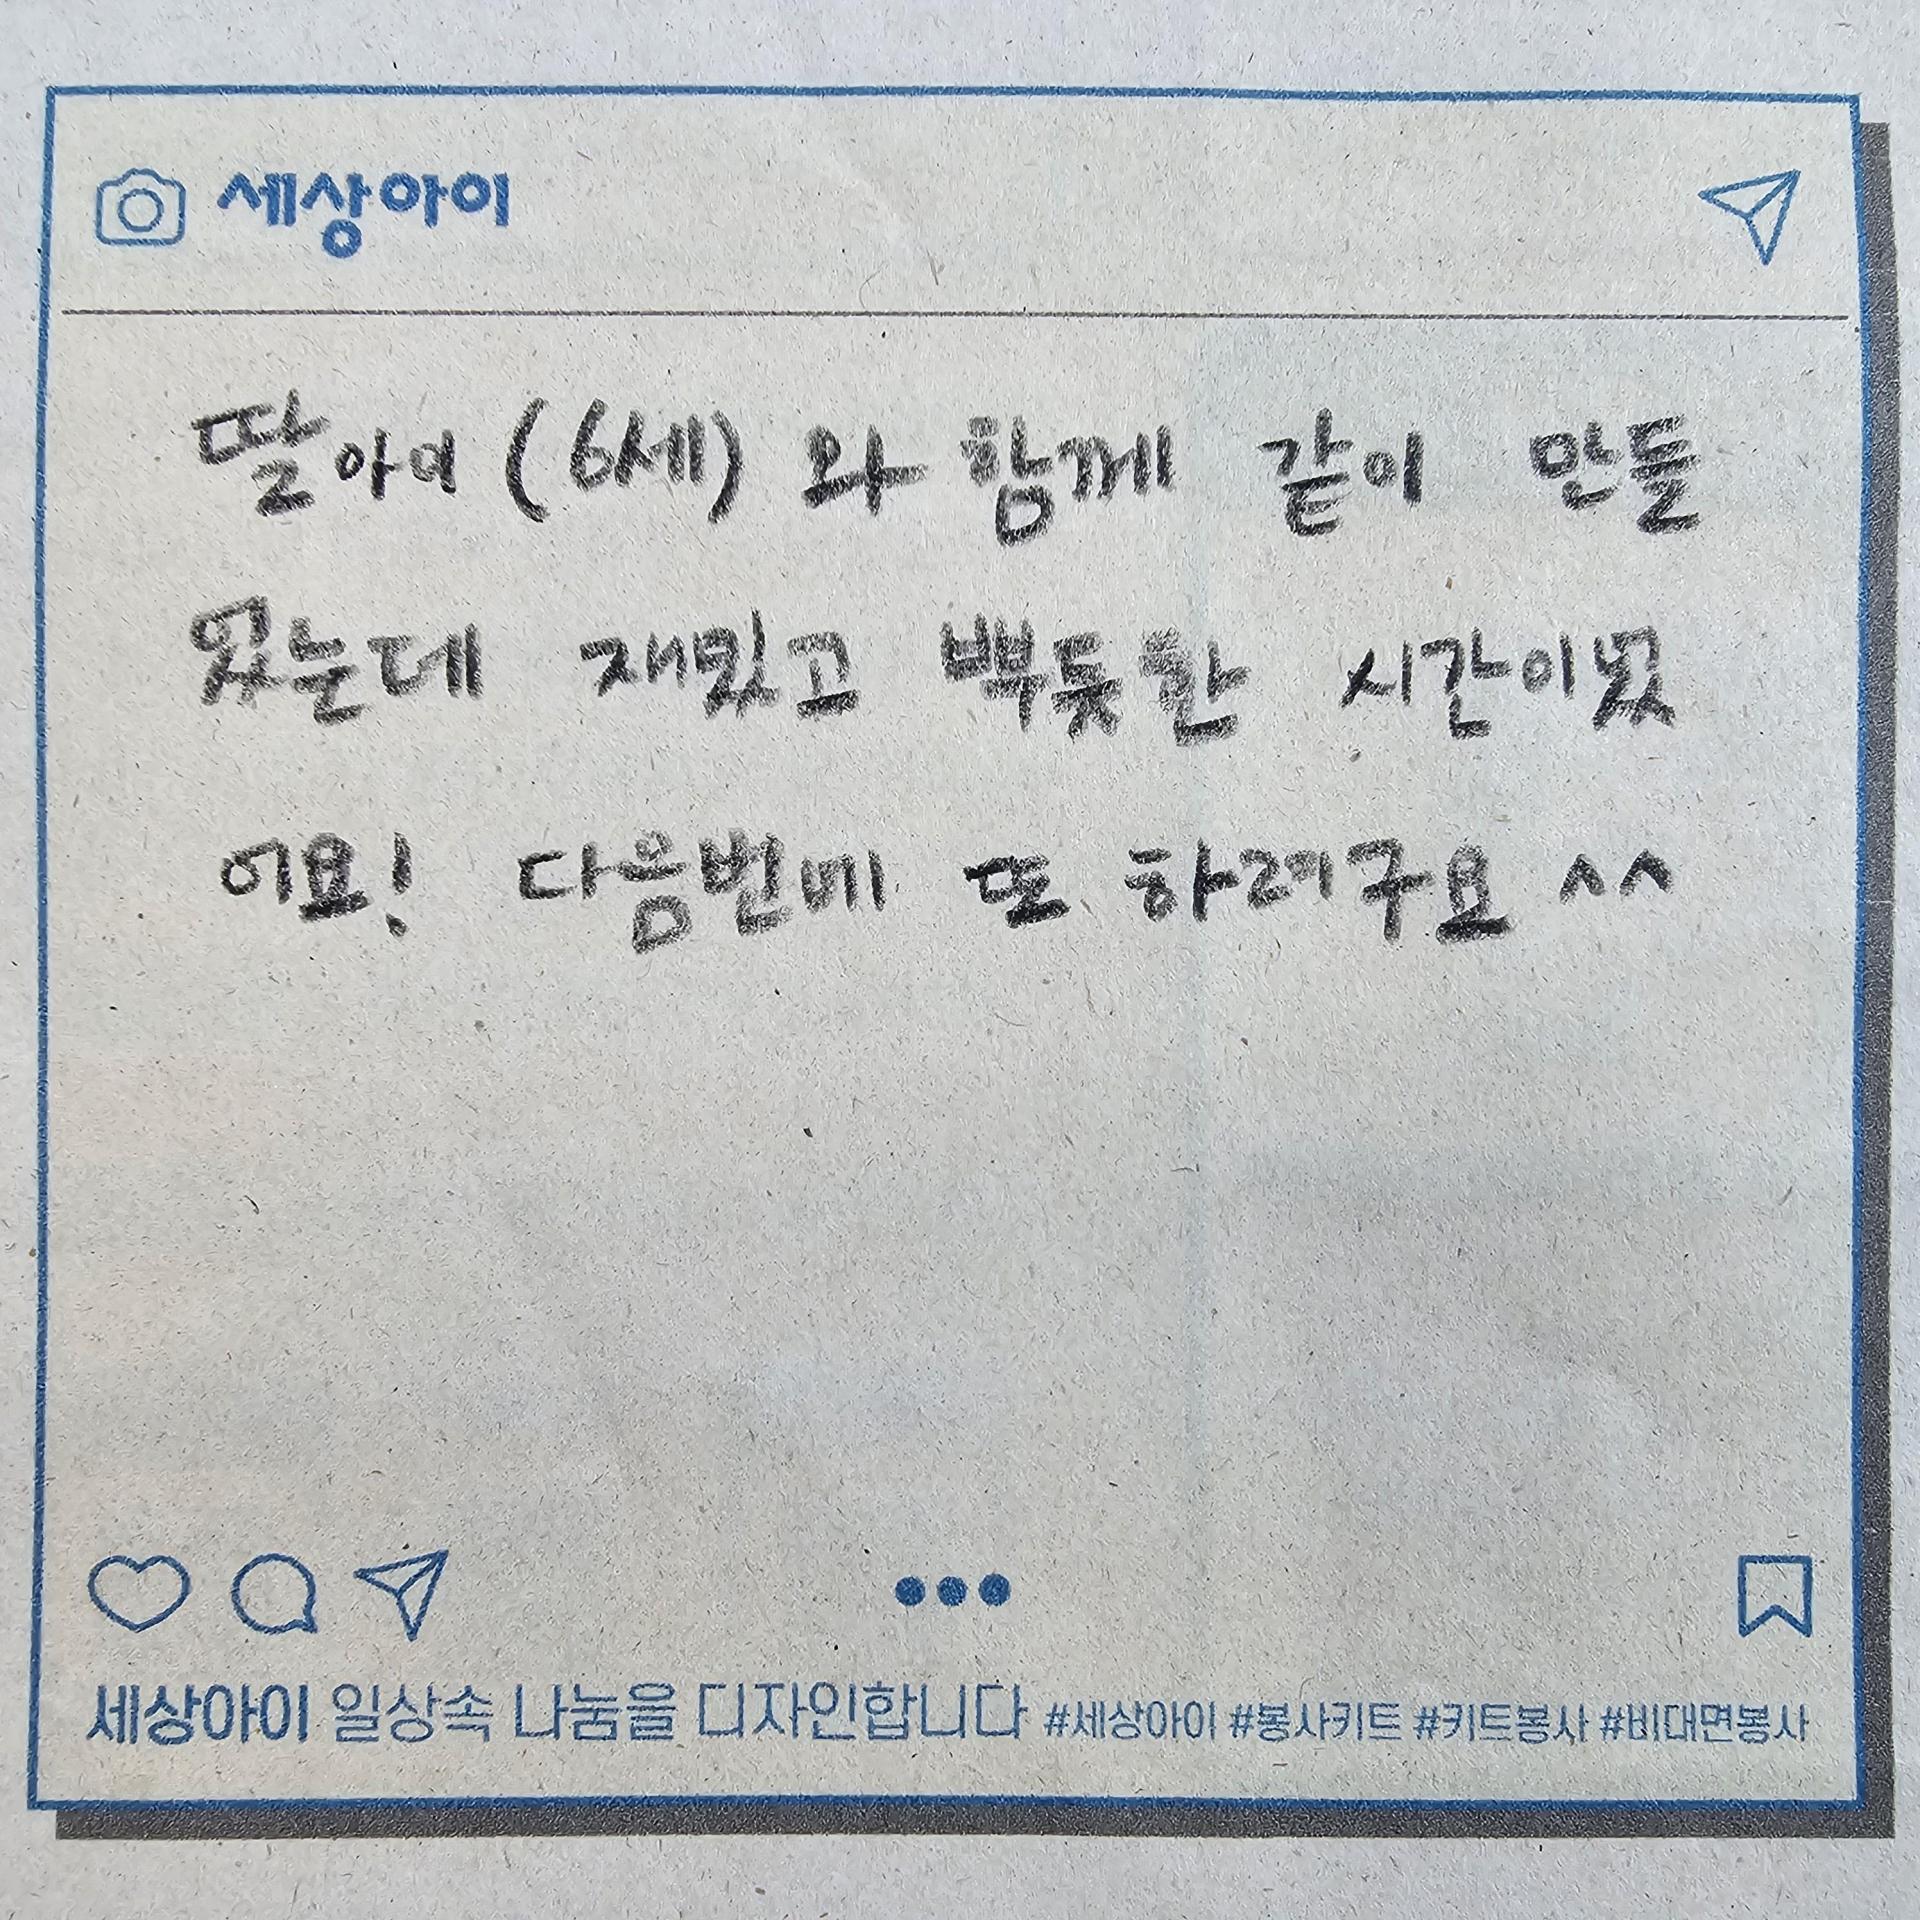 세상아이
딸아이 (6세) 와 함께 같이 만들
었는데 재밌고 뿌듯한 시간이었
어요! 다음번에 또 하려구요 ^^
세상아이 일상속 나눔을 디자인합니다 #세상아이 #봉사키트 #키트봉사 #비대면봉사